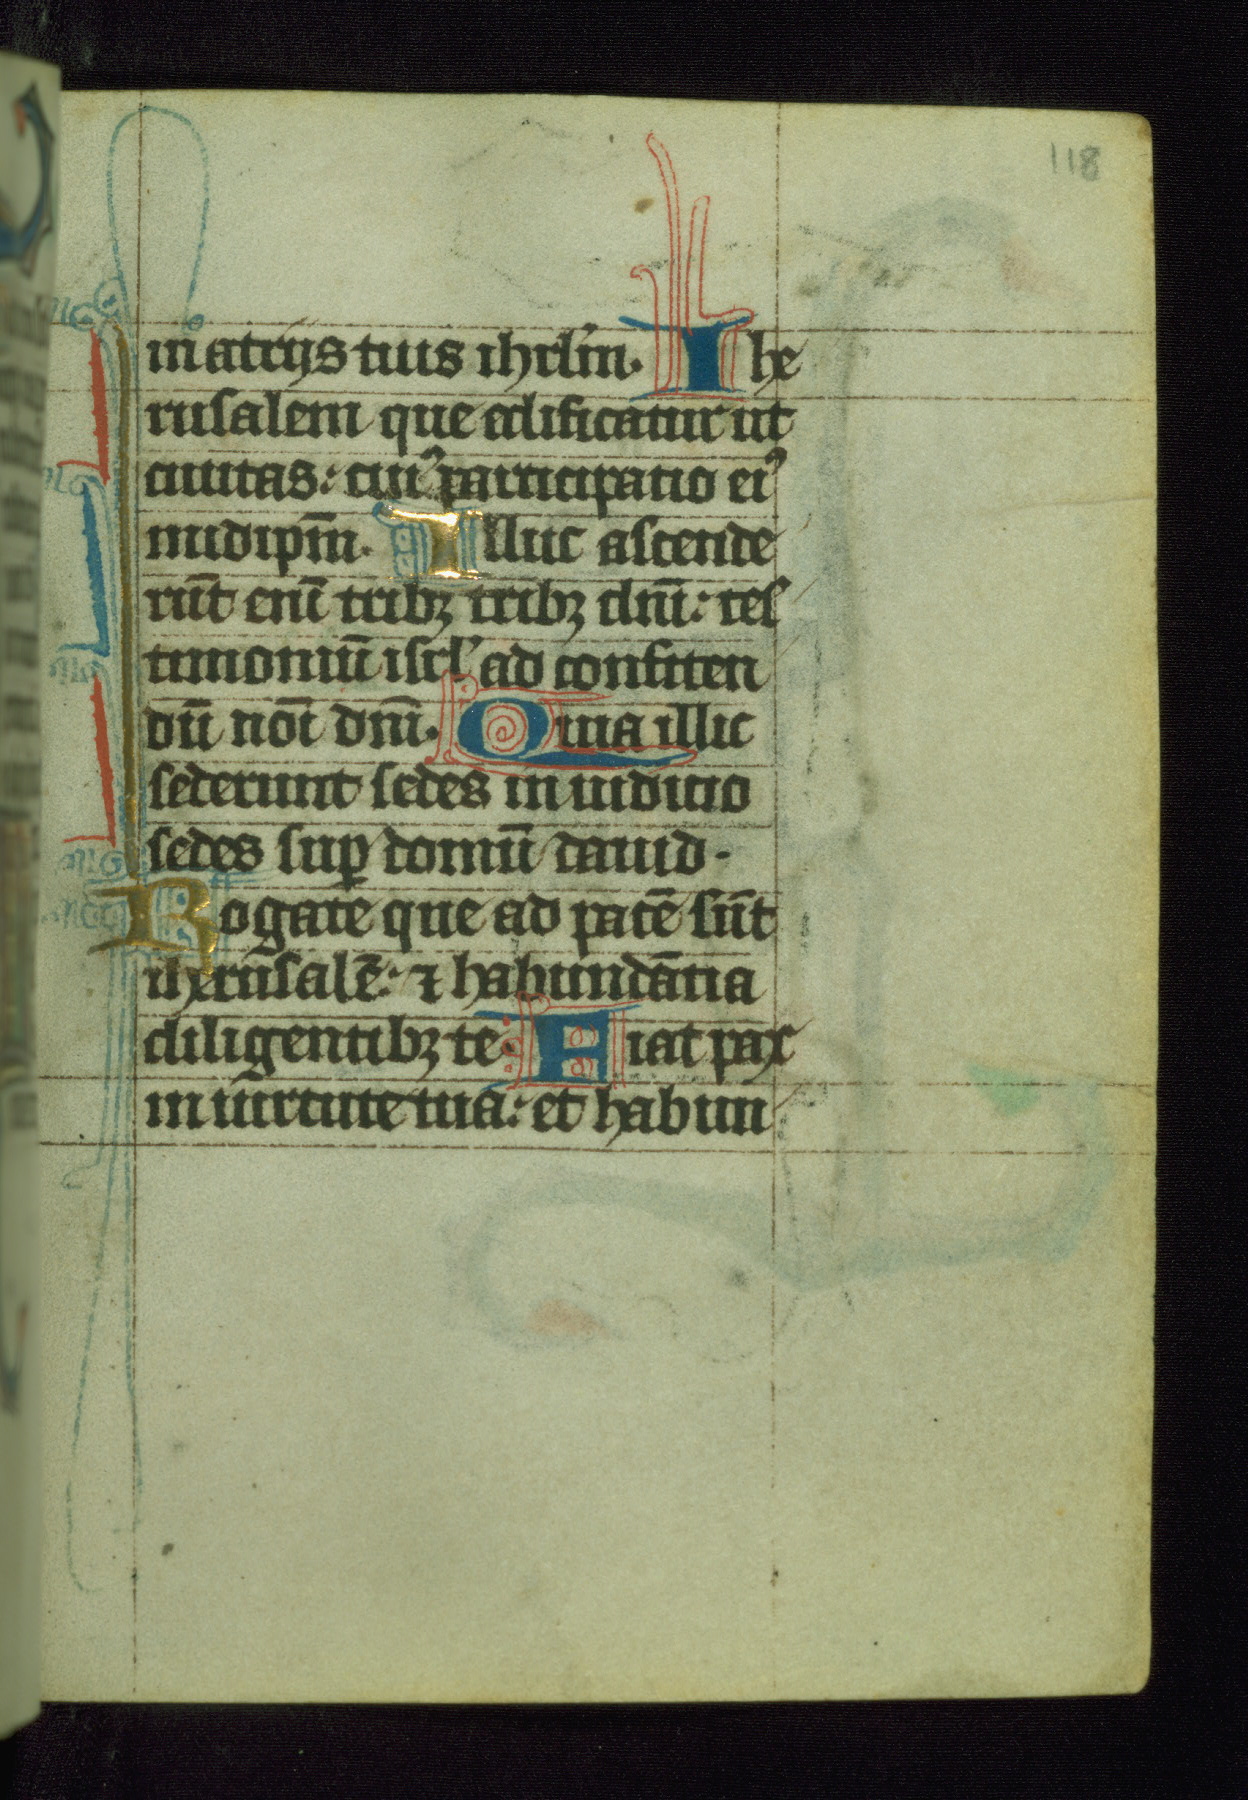 118
in atrijs tuis ihrlm̄. Ihe
rusalem que edificatur ut
ciuitas: cuiꝰ participatio eiꝰ
in idip̄m. Illuc ascende
rūt enī tribꝫ tribꝫ dn̄i: tes
timoniū isrl' ad confiten
dū noī dn̄i. Quia illic
sederunt sedes in iudicio
sedes suꝑ domū dauid.
Rogate que ad pacē sūt
iherusalē: ⁊ habundātia
diligentibꝫ te. Fiat pax
in uirtute tua: et habun